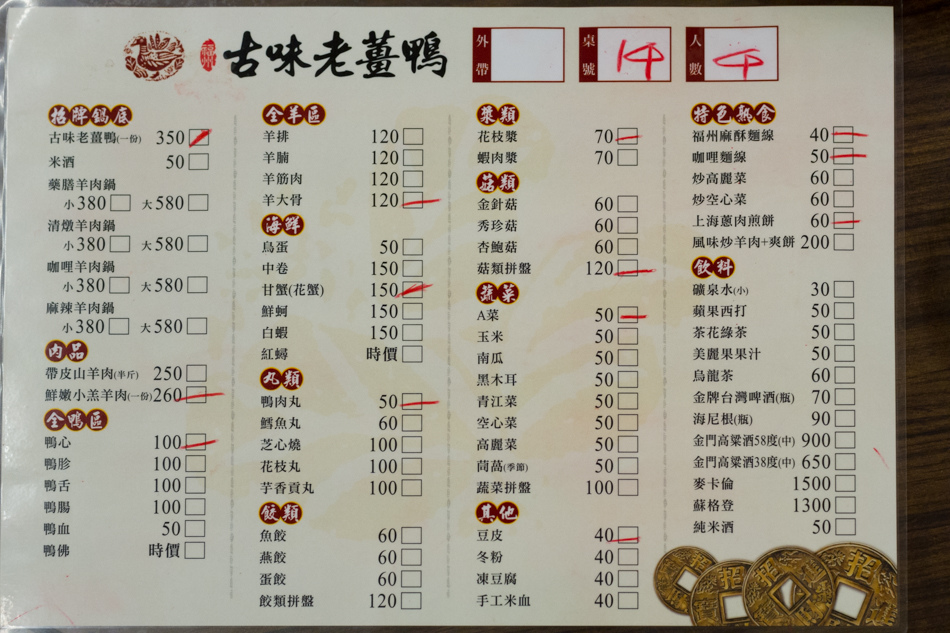 福州 古味老薑鴨
外帶
桌號
人數
招牌鍋底
古味老薑鴨(一份) 350
米酒 50
藥膳羊肉鍋
小380 大580
清燉羊肉鍋
小380 大580
咖哩羊肉鍋
小380 大580
麻辣羊肉鍋
小380 大580
肉品
帶皮山羊肉(半斤) 250
鮮嫩小羔羊肉(一份) 260
全鴨區
鴨心 100
鴨胗 100
鴨舌 100
鴨腸 100
鴨血 50
鴨佛 時價
全羊區
羊排 120
羊腩 120
羊筋肉 120
羊大骨 120
海鮮
鳥蛋 50
中卷 150
甘蟹(花蟹) 150
鮮蚵 150
白蝦 150
紅蟳 時價
丸類
鴨肉丸 50
鱈魚丸 60
芝心燒 100
花枝丸 100
芋香貢丸 100
餃類
魚餃 60
燕餃 60
蛋餃 60
餃類拼盤 120
漿類
花枝漿 70
蝦肉漿 70
菇類
金針菇 60
秀珍菇 60
杏鮑菇 60
菇類拼盤 120
蔬菜
A菜 50
玉米 50
南瓜 50
黑木耳 50
青江菜 50
空心菜 50
高麗菜 50
茼萵(季節) 50
蔬菜拼盤 100
其他
豆皮 40
冬粉 40
凍豆腐 40
手工米血 40
特色熟食
福州麻酥麵線 40
咖哩麵線 50
炒高麗菜 60
炒空心菜 60
上海蔥肉煎餅 60
風味炒羊肉+爽餅 200
飲料
礦泉水(小) 30
蘋果西打 50
茶花綠茶 50
美麗果果汁 50
烏龍茶 60
金牌台灣啤酒(瓶) 70
海尼根(瓶) 90
金門高粱酒58度(中) 900
金門高粱酒38度(中) 650
麥卡倫 1500
蘇格登 1300
純米酒 50
招
招
招